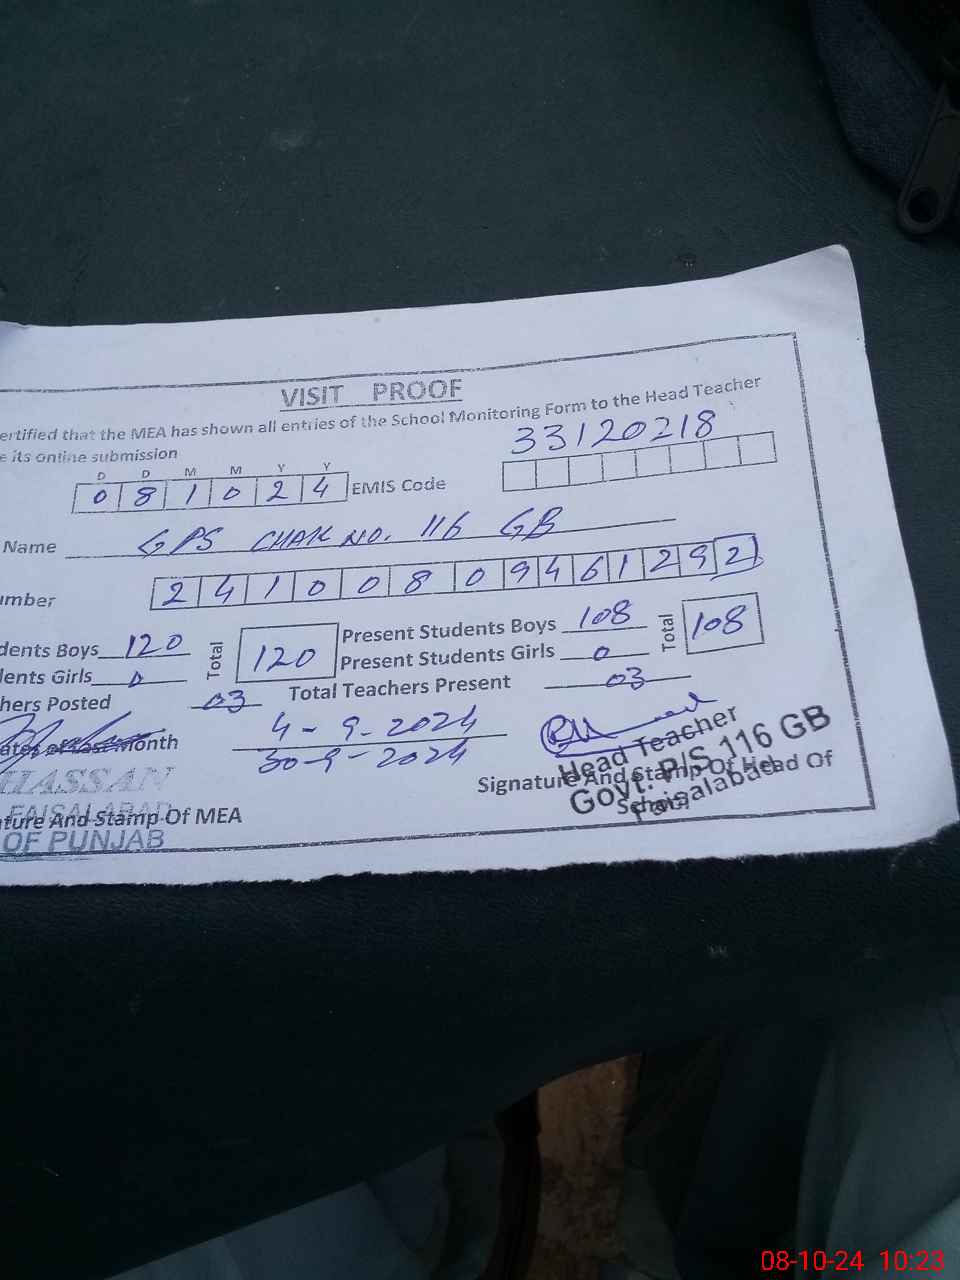 VISIT PROOF
ertified that the MEA has shown all entries of the School Monitoring Form to the Head Teacher
e its online submission
33120218
D D M M Y Y
0 8 1 0 2 4 EMIS Code
Name GPS CHAK NO. 116 GB
umber 2 4 1 0 0 8 0 9 4 6 1 2 9 2
dents Boys 120 Total 120 Present Students Boys 108 Total 108
dents Girls 0 Present Students Girls 0
hers Posted 03 Total Teachers Present 03
month 4-9-2024
30-9-2024
Head Teacher
Govt. P/S 116 GB
Faisalabad
Signature And Stamp Of Head Of
School
HASSAN
FAISALABAD
ture And Stamp Of MEA
OF PUNJAB
08-10-24 10:23